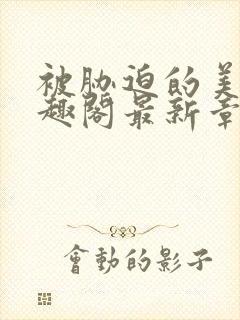 被胁迫的美
趣阁最新章
會動的影子